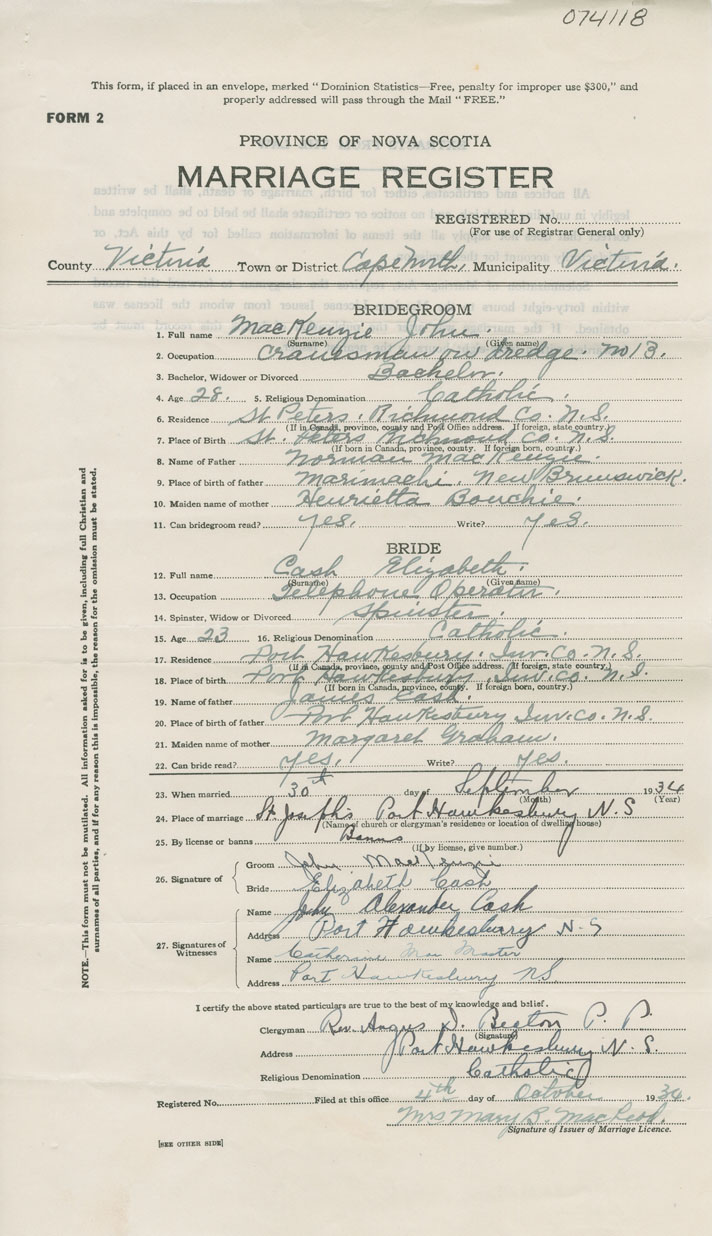 074118
This form, if placed in an envelope, marked "Dominion Statistics—Free, penalty for improper use $300," and
properly addressed will pass through the Mail "FREE."
FORM 2
PROVINCE OF NOVA SCOTIA
MARRIAGE REGISTER
REGISTERED No.
(For use of Registrar General only)
County Victoria Town or District Cape North, Municipality Victoria.
BRIDEGROOM
1. Full name MacKenzie John.
(Surname) (Given name)
2. Occupation Cranesman on Dredge. No 13.
3. Bachelor, Widower or Divorced Bachelor.
4. Age 28. 5. Religious Denomination Catholic.
6. Residence St Peters. Richmond Co. N.S.
(If in Canada, province, county and Post Office address. If foreign, state country.)
7. Place of Birth St. Peters Richmond Co. N.S.
(If born in Canada, province, county. If foreign born, country.)
8. Name of Father Norman MacKenzie.
9. Place of birth of father Marimachi, New Brunswick.
10. Maiden name of mother Henrietta Bouchie.
11. Can bridegroom read? Yes. Write? Yes.
BRIDE
12. Full name Cash Elizabeth.
(Surname) (Given name)
13. Occupation Telephone Operator.
14. Spinster, Widow or Divorced Spinster.
15. Age 23 16. Religious Denomination Catholic.
17. Residence Port Hawkesbury. Inv. Co. N.S.
(If in Canada, province, county and Post Office address. If foreign, state country.)
18. Place of birth Port Hawkesbury. Inv. Co. N.S.
(If born in Canada, province, county. If foreign born, country.)
19. Name of father James Cash.
20. Place of birth of father Port Hawkesbury Inv. Co. N.S.
21. Maiden name of mother Margaret Graham.
22. Can bride read? Yes. Write? Yes.
23. When married 30th day of September 1934
(Month) (Year)
24. Place of marriage St Josephs Port Hawkesbury N.S
(Name of church or clergyman's residence or location of dwelling house)
25. By license or banns Banns
(If by license, give number.)
26. Signature of
Groom John MacKenzie
Bride Elizabeth Cash
27. Signatures of Witnesses
Name John Alexander Cash
Address Port Hawkesbury N.S
Name Catherine Mac Master
Address Port Hawkesbury NS
I certify the above stated particulars are true to the best of my knowledge and belief.
Clergyman Rev. Angus D. Beaton P. P.
(Signature)
Address Port Hawkesbury N.S.
Religious Denomination Catholic
Registered No. Filed at this office 4th day of October 1934.
Mrs Mary B. MacLeod.
Signature of Issuer of Marriage Licence.
[SEE OTHER SIDE]
NOTE.—This form must not be mutilated. All information asked for is to be given, including full Christian and
surnames of all parties, and if for any reason this is impossible, the reason for the omission must be stated.